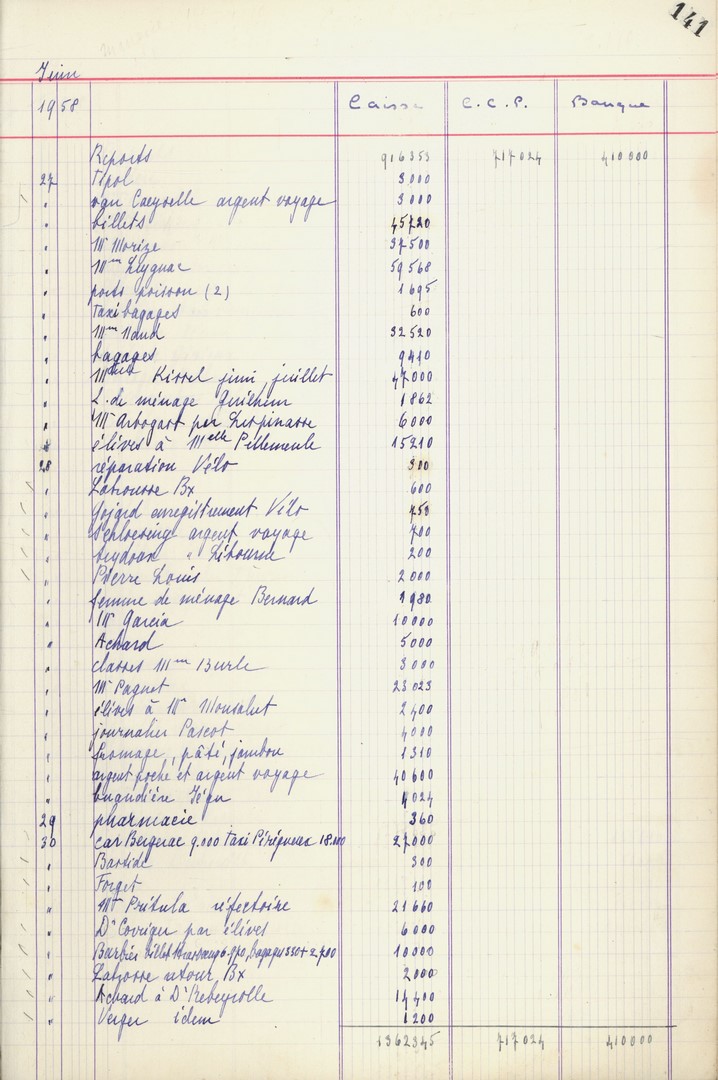 141
Juin
1958 Caisse C.C.P. Banque
Reports 916353 717024 410000
27 Tipol 3000
" van Caeyselle argent voyage 3000
" billets 45720
" Mr Morize 37500
" Mme Leygnac 59568
" ports poisson (2) 1695
" Taxi bagages 600
" Mme Naud 32520
" bagages 9410
" Kissel juin, juillet 47000
" L. de ménage Guilhem 1862
" Mr Arbogast par Lespinasse 6000
" élèves à Melle Pellemeule 15210
28 réparation Vélo 300
" Latrousse Bx 600
" Gojard enregistrement Vélo 750
" Schloesing argent voyage 700
" Seydoux " Libourne 200
" Pierre Louis 2000
" femme de ménage Bernard 1980
" Mr Garcia 10000
" Achard 5000
" classes Mme Burle 3000
" Mr Paquet 23023
" élèves à Mr Monsalut 2400
" journalier Pascot 4000
" fromage, pâté, jambon 1310
" argent poche et argent voyage 40600
" buandière 4024
29 pharmacie 360
30 car Bergerac 9.000 Taxi Périgueux 18.000 27000
" Bastide 300
" Forget 100
" Mr Pritula réfectoire 21660
" Dr Covriga par élèves 6000
" Barbier billet Strasbourg 6.970, bagages 330 + 2.700 10000
" Latrousse retour Bx 2000
" Achard à Dr Rebeyrolle 14400
" Verger idem 1200
1362345 717024 410000